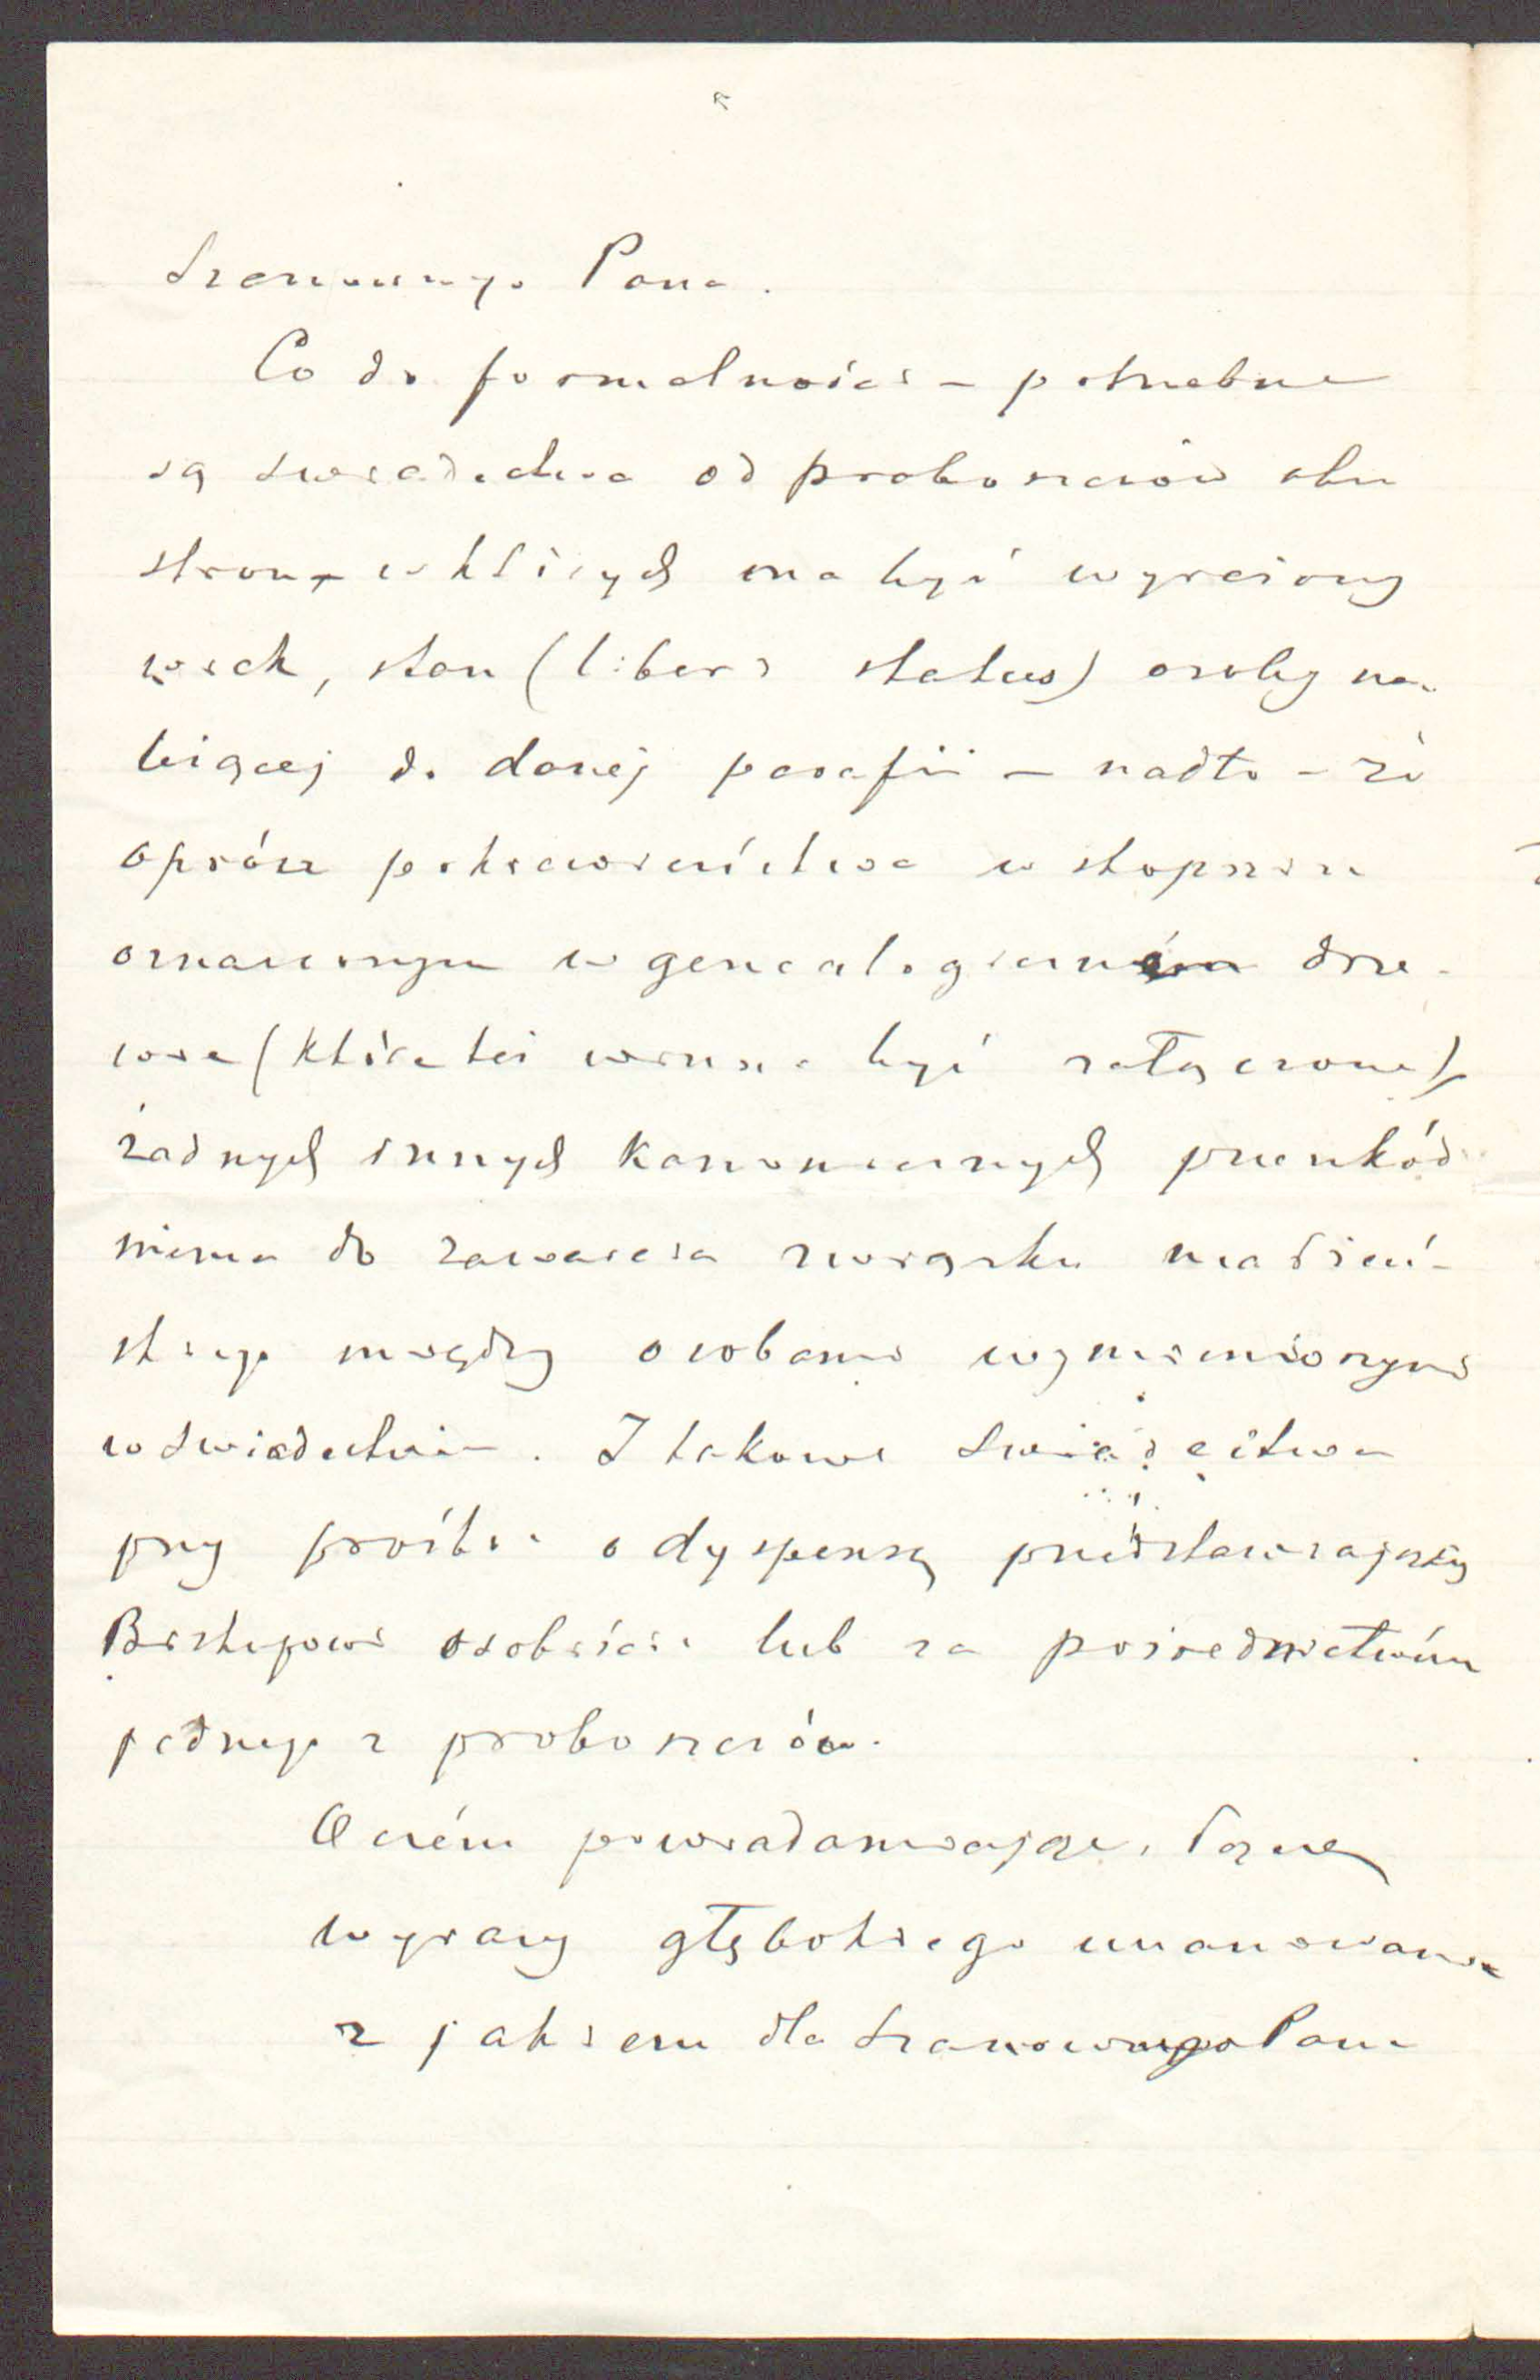 Szanownego Pana.
Co do formalności – potrzebne
są świadectwa od proboszczów obu
stron, w których ma być wyrażony
wiek, stan (liberi status) osoby na-
leżącej do danej parafii – nadto – że
oprócz pokrewieństwa w stopniu
oznaczonym w genealogiczném drze-
wie (które też winno być załączone),
żadnych innych kanonicznych przeszkód
niema do zawarcia związku małżeń-
skiego między osobami wymienionymi
w świadectwie. I takowe świadectwa
przy prośbie o dyspensę przedstawiają się
Biskupowi osobiście lub za pośrednictwém
jednego z proboszczów.
O czém powiadamiając, łączę
wyrazy głębokiego uszanowania
z jakiem dla Szanownego Pana